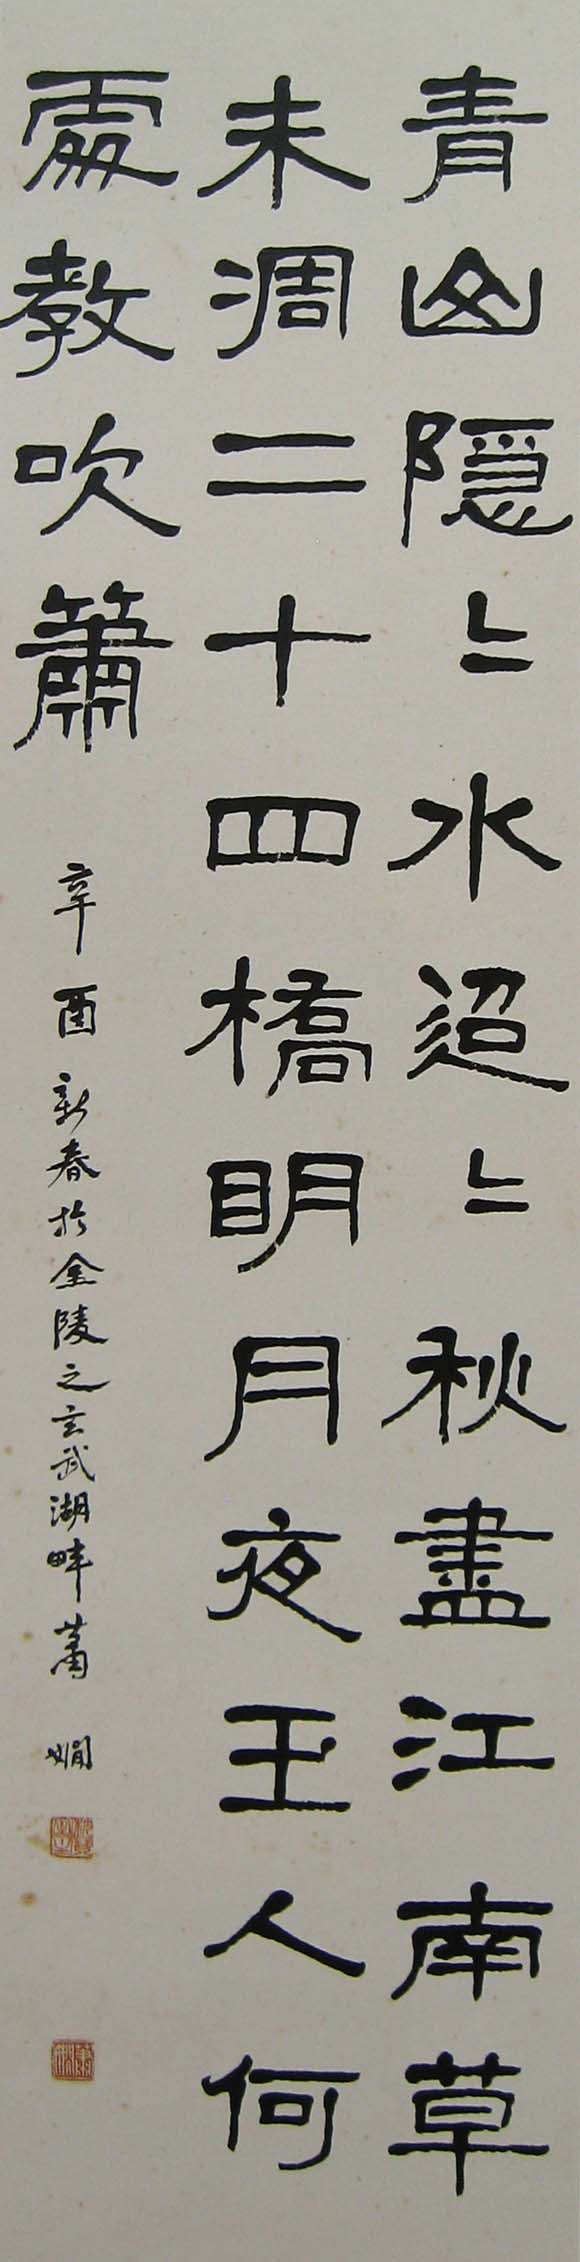 青山隱〻水迢〻秋盡江南草
未凋二十四橋明月夜玉人何
處教吹簫
辛酉新春於金陵之玄武湖畔蕭嫻